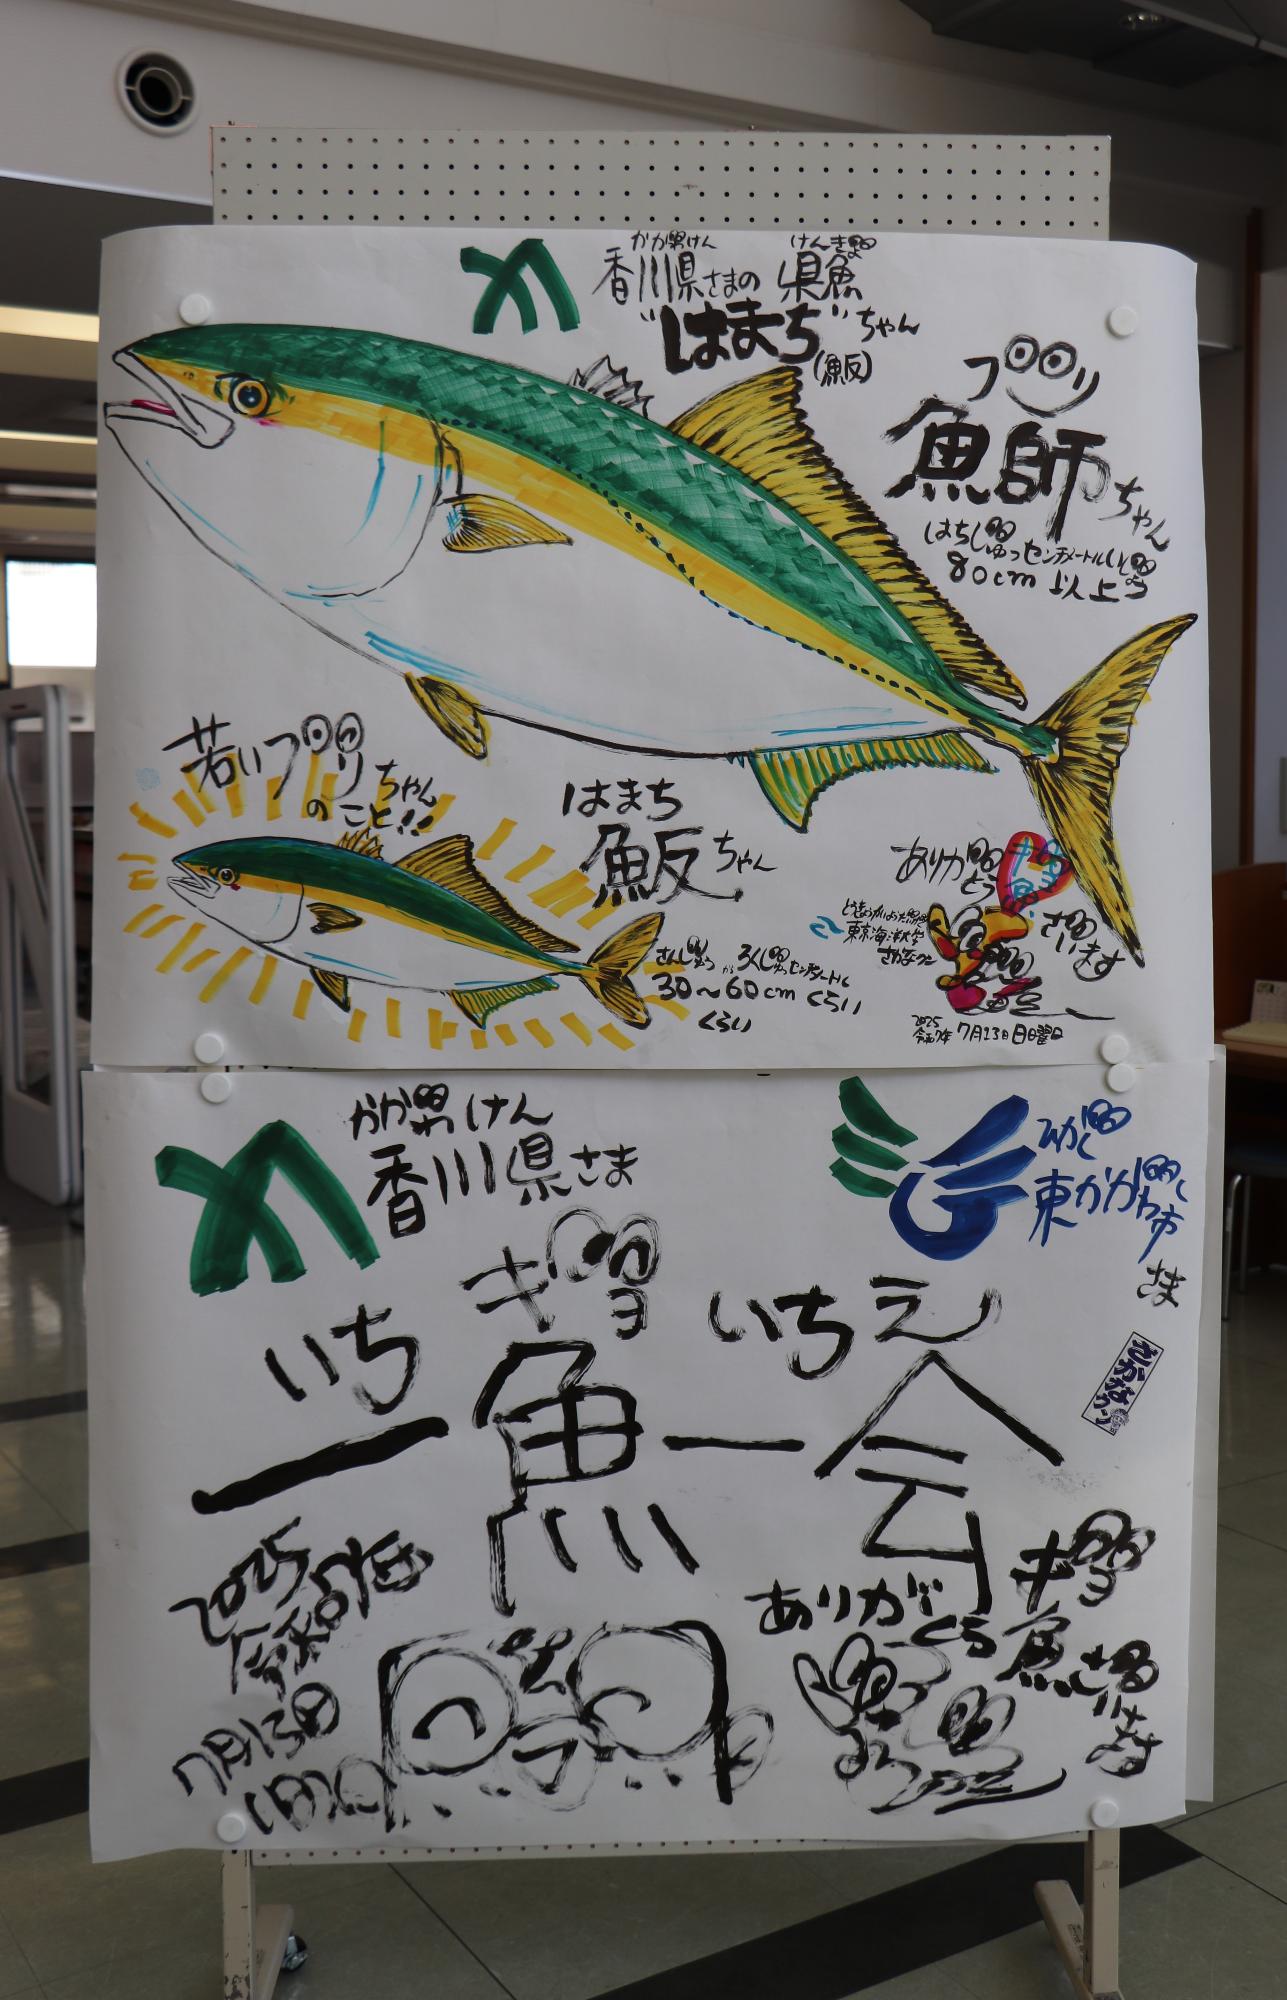 かが けん けんぎょ
香川県さまの 県魚
"はまち"ちゃん
(魬)
ブリ
魚師ちゃん
はちじゅっセンチメートルいじょう
80cm以上
若いブリちゃん
のこと!!
はまち
魬ちゃん
さんじゅう から ろくじゅっセンチメートル
30〜60cmくらい
くらい
ありがとう
ございます
東京海洋大学
さかなクン
2025
令和7年 7月13日 日曜日
かがわけん
香川県さま
ひがし
東かがわ市
さま
いち ギョ いちえ
一魚一会
さかなクン
2025
令和7年
7月13日
ありがとう
ギョ
魚ざいます